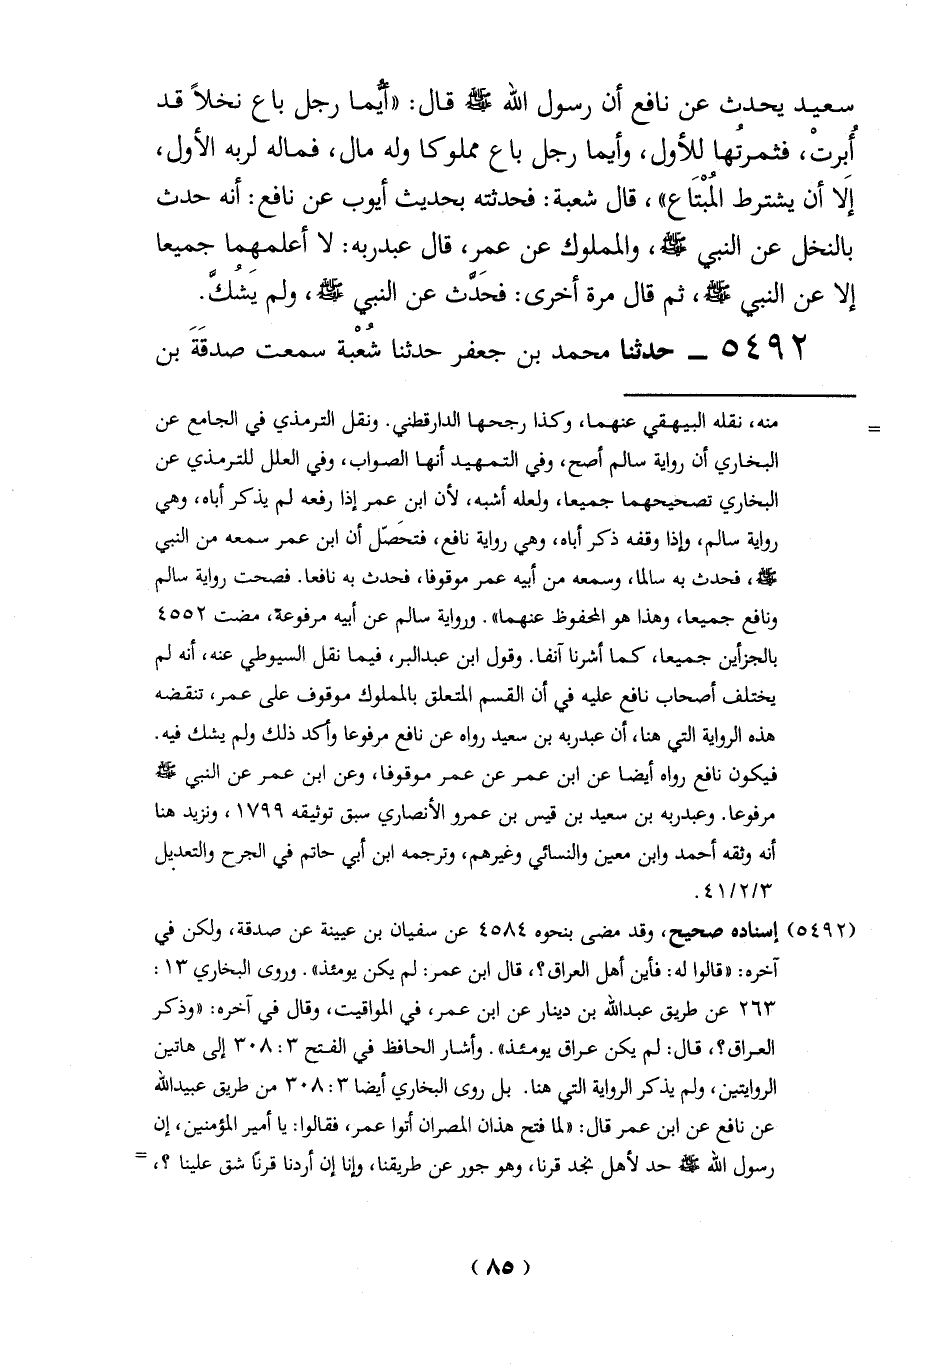 سعيد يحدث عن نافع أن رسول الله ﷺ قال: «أَيُّما رجل باع نخلاً قد
أُبرتْ، فثمرتُها للأول، وأيما رجل باع مملوكا وله مال، فماله لربه الأول،
إلا أن يشترط المُبْتَاع»، قال شعبة: فحدثته بحديث أيوب عن نافع: أنه حدث
بالنخل عن النبي ﷺ، والمملوك عن عمر، قال عبدربه: لا أعلمهما جميعا
إلا عن النبي ﷺ، ثم قال مرة أخرى: فحَدَّث عن النبي ﷺ، ولم يَشُكَّ.
٥٤٩٢ ـ حدثنا محمد بن جعفر حدثنا شُعْبة سمعت صدقَةَ بن
= منه، نقله البيهقي عنهما، وكذا رجحها الدارقطني. ونقل الترمذي في الجامع عن
البخاري أن رواية سالم أصح، وفي التمهيد أنها الصواب، وفي العلل للترمذي عن
البخاري تصحيحهما جميعا، ولعله أشبه، لأن ابن عمر إذا رفعه لم يذكر أباه، وهي
رواية سالم، وإذا وقفه ذكر أباه، وهي رواية نافع، فتحَصّل أن ابن عمر سمعه من النبي
ﷺ، فحدث به سالما، وسمعه من أبيه عمر موقوفا، فحدث به نافعا. فصحت رواية سالم
ونافع جميعا، وهذا هو المحفوظ عنهما». ورواية سالم عن أبيه مرفوعة، مضت ٤٥٥٢
بالجزأين جميعا، كما أشرنا آنفا. وقول ابن عبدالبر، فيما نقل السيوطي عنه، أنه لم
يختلف أصحاب نافع عليه في أن القسم المتعلق بالمملوك موقوف على عمر، تنقضه
هذه الرواية التي هنا، أن عبدربه بن سعيد رواه عن نافع مرفوعا وأكد ذلك ولم يشك فيه.
فيكون نافع رواه أيضا عن ابن عمر عن عمر موقوفا، وعن ابن عمر عن النبي ﷺ
مرفوعا. وعبدربه بن سعيد بن قيس بن عمرو الأنصاري سبق توثيقه ١٧٩٩، ونزيد هنا
أنه وثقه أحمد وابن معين والنسائي وغيرهم، وترجمه ابن أبي حاتم في الجرح والتعديل
٤١/٢/٣.
(٥٤٩٢) إسناده صحيح، وقد مضى بنحوه ٤٥٨٤ عن سفيان بن عيينة عن صدقة، ولكن في
آخره: «قالوا له: فأين أهل العراق؟، قال ابن عمر: لم يكن يومئذ». وروى البخاري ١٣:
٢٦٣ عن طريق عبدالله بن دينار عن ابن عمر، في المواقيت، وقال في آخره: «وذكر
العراق؟، قال: لم يكن عراق يومئذ». وأشار الحافظ في الفتح ٣٠٨:٣ إلى هاتين
الروايتين، ولم يذكر الرواية التي هنا. بل روى البخاري أيضا ٣٠٨:٣ من طريق عبيدالله
عن نافع عن ابن عمر قال: «لما فتح هذان المصران أتوا عمر، فقالوا: يا أمير المؤمنين، إن
رسول الله ﷺ حد لأهل نجد قرنا، وهو جور عن طريقنا، وإنا إن أردنا قرنًا شق علينا ؟، =
(٨٥)